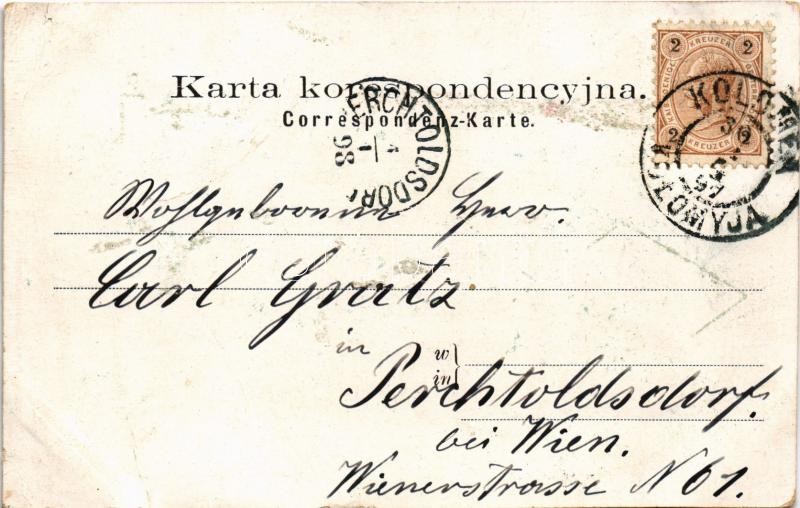 2 KREUZER 2
2 KREUZER 2
Karta korespondencyjna.
Correspondenz-Karte.
ERCHTOLDSDORF
1
98
KOLOMEA
97
Wohlgeboornen Herr.
Carl Gratz
in
w
in
Perchtoldsdorf.
bei Wien.
Wienerstrasse N 61.